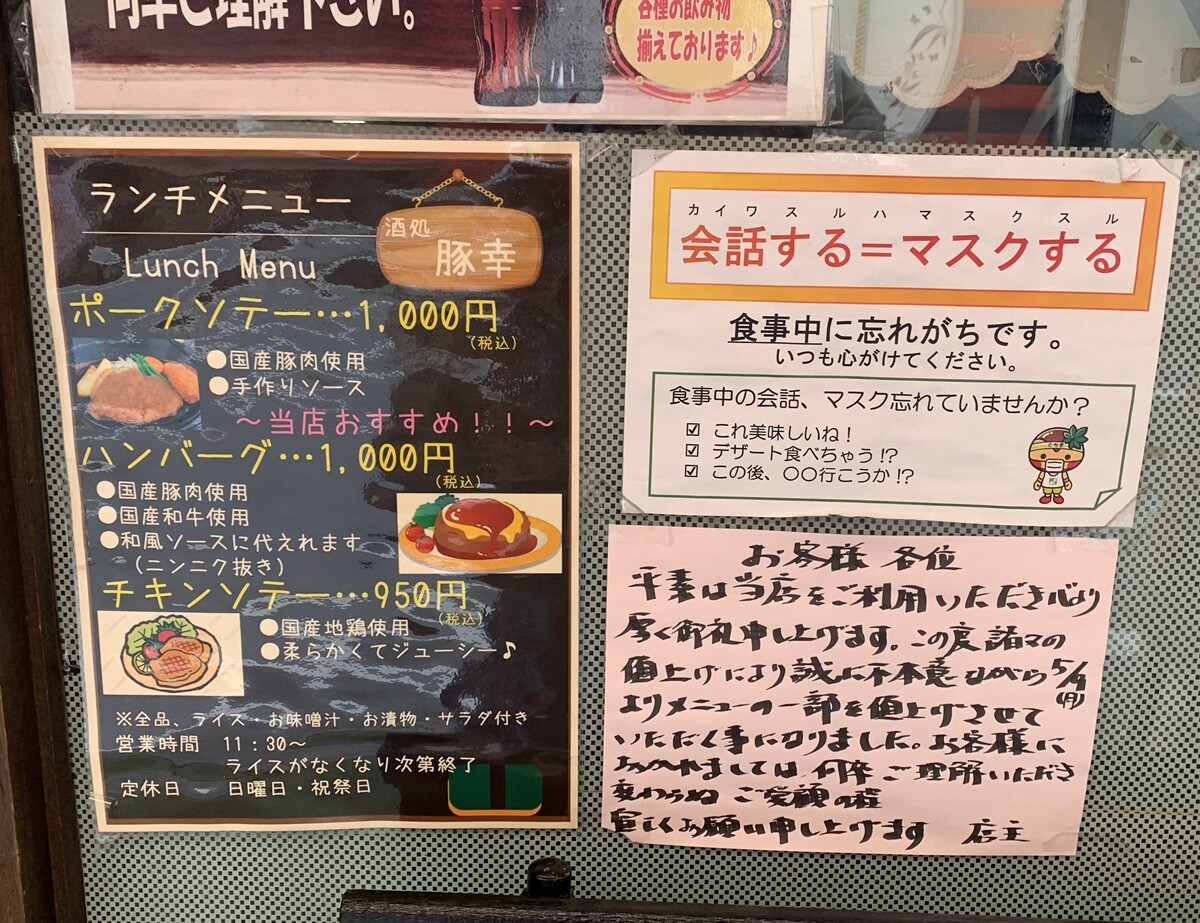 何卒ご理解下さい。
各種お飲み物
揃えております♪
ランチメニュー
Lunch Menu
酒処
豚幸
ポークソテー…1,000円
(税込)
●国産豚肉使用
●手作りソース
～当店おすすめ！！～
ハンバーグ…1,000円
(税込)
●国産豚肉使用
●国産和牛使用
●和風ソースに代えれます
(ニンニク抜き)
チキンソテー…950円
(税込)
●国産地鶏使用
●柔らかくてジューシー♪
※全品、ライス・お味噌汁・お漬物・サラダ付き
営業時間 11：30～
ライスがなくなり次第終了
定休日 日曜日・祝祭日
カイワスルハマスクスル
会話する＝マスクする
食事中に忘れがちです。
いつも心がけてください。
食事中の会話、マスク忘れていませんか？
☑ これ美味しいね！
☑ デザート食べちゃう!?
☑ この後、〇〇行こうか!?
お客様 各位
平素は当店をご利用いただき心より
厚く御礼申し上げます。この度諸々の
値上げにより誠に不本意ながら5/9(月)
よりメニューの一部を値上げさせて
いただく事になりました。お客様に
おかれましては、何卒ご理解いただき
変わらぬご愛顧の程
宜しくお願い申し上げます 店主